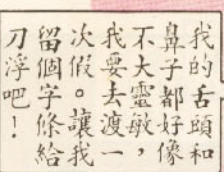 我的舌頭和
鼻子都好像
不大靈敏，
我要去渡一
次假。讓我
留個字條給
刀浮吧！